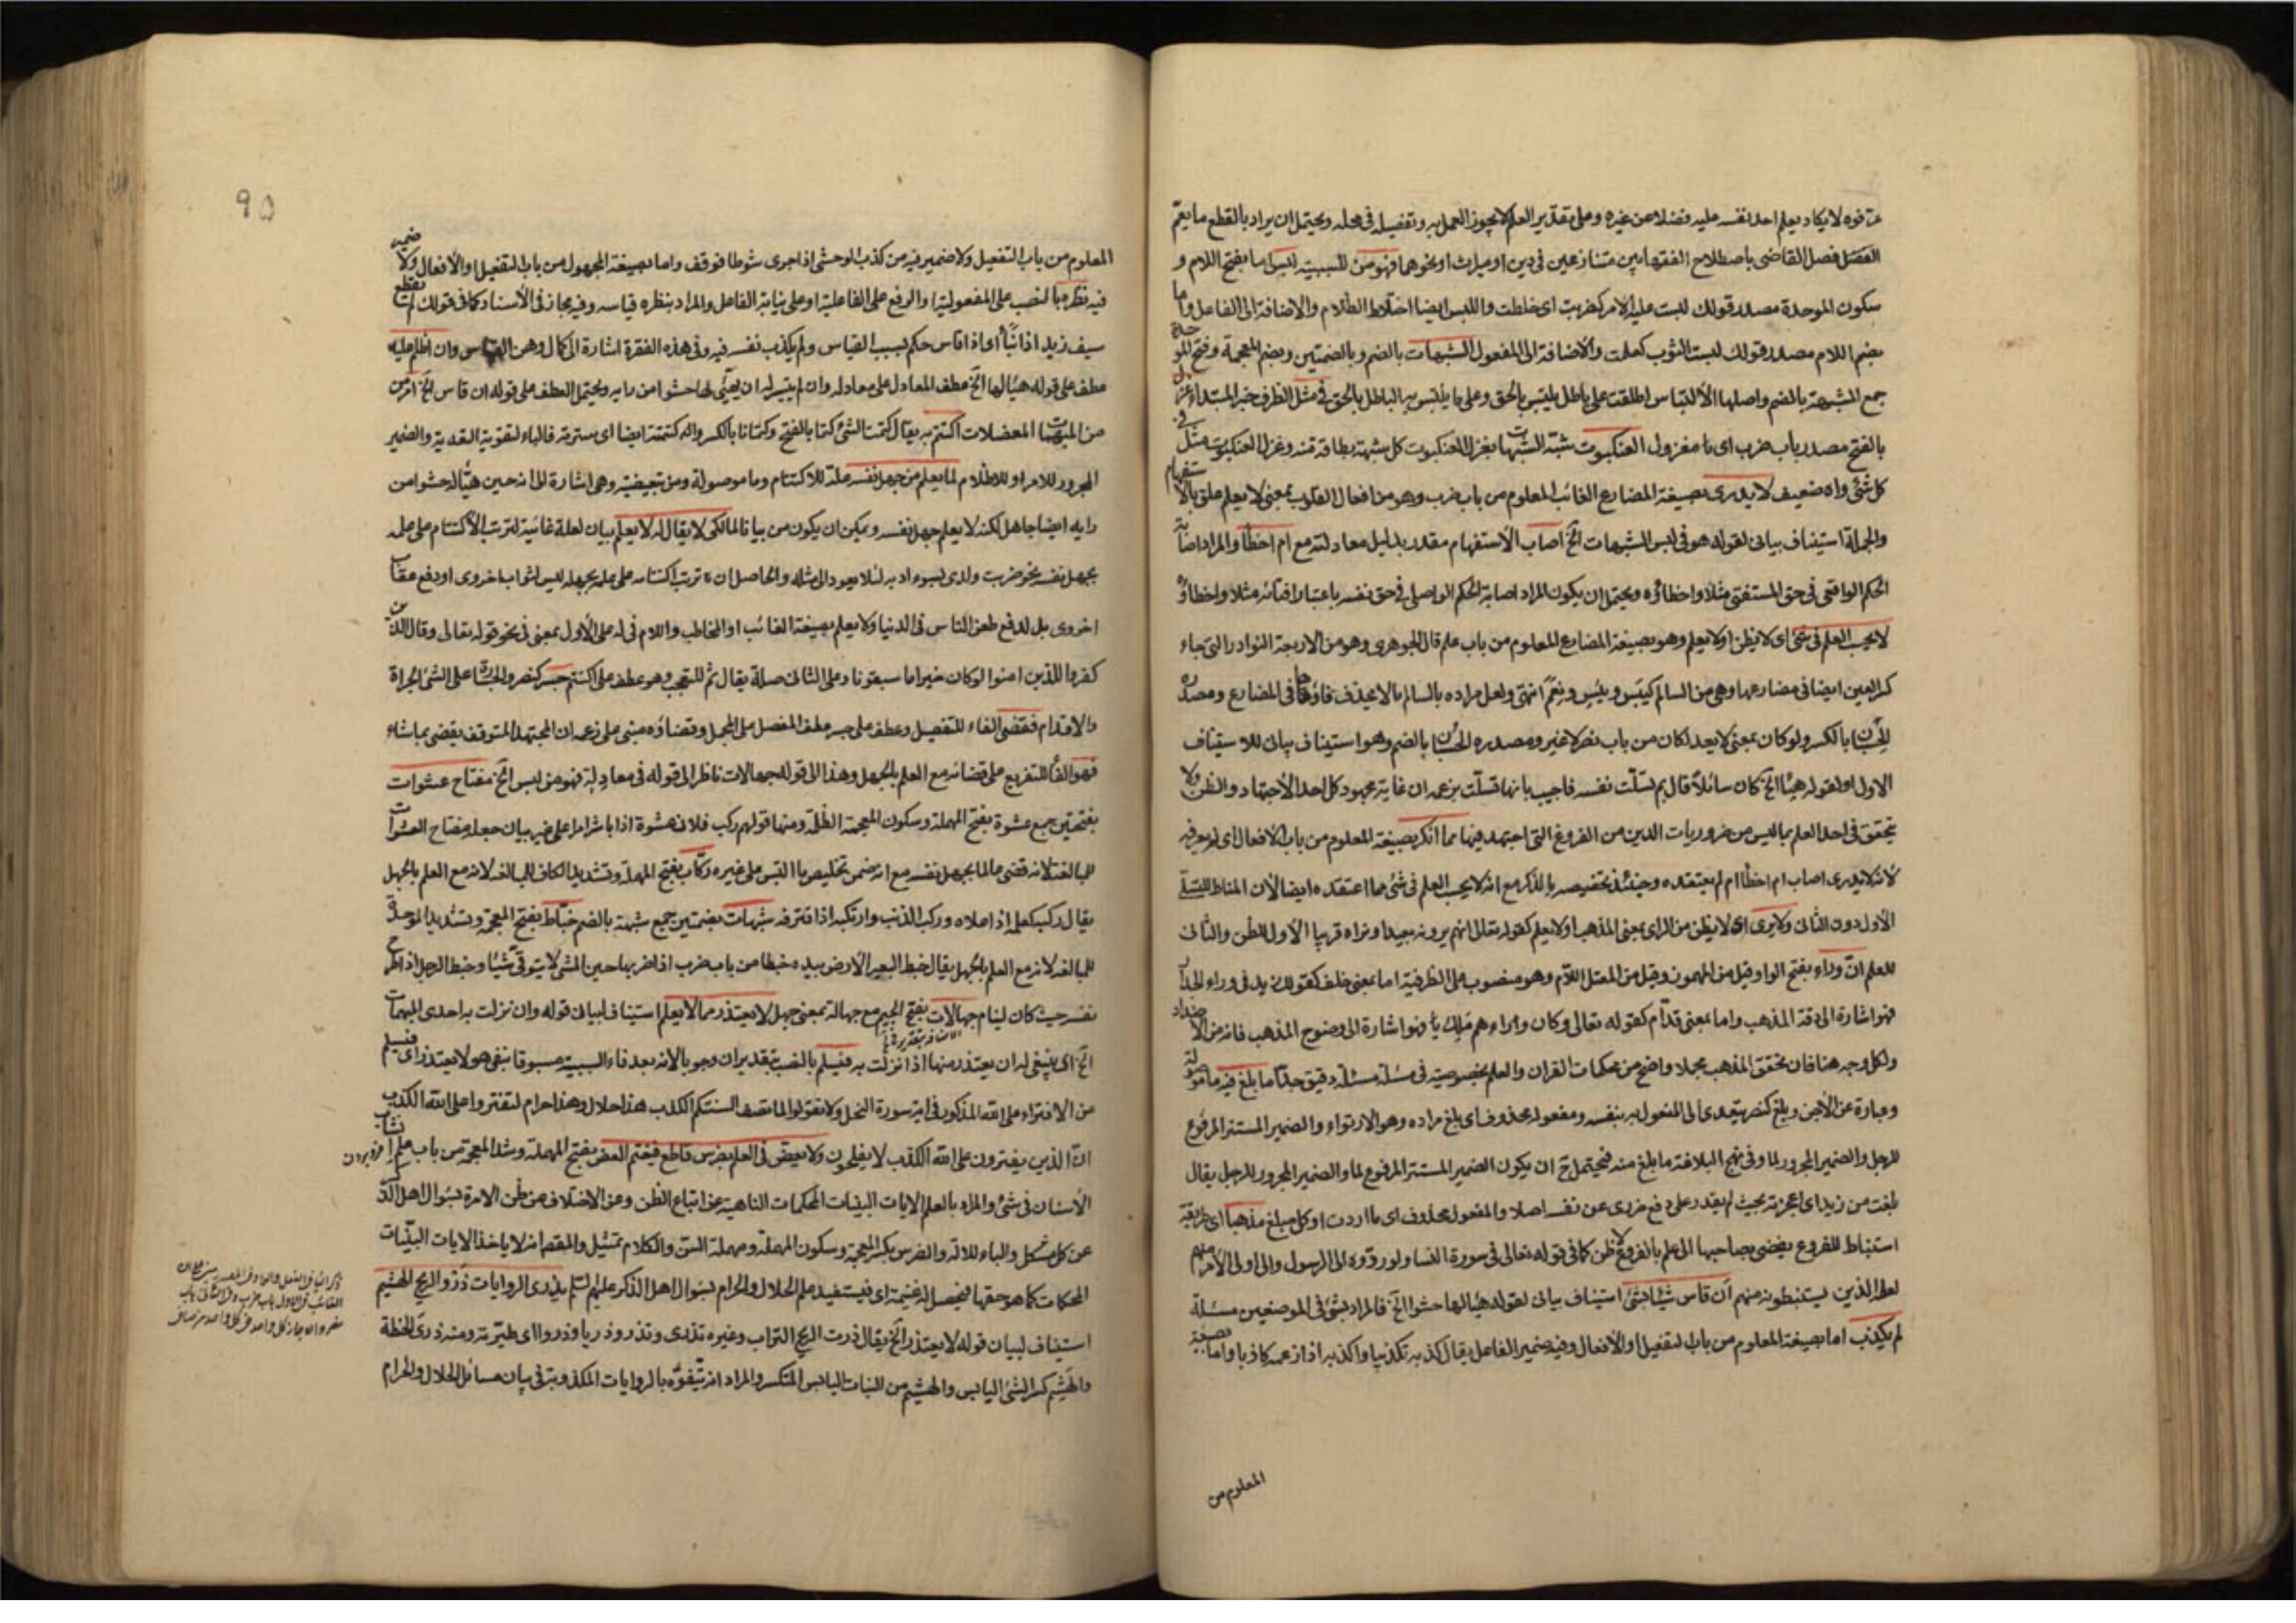 عرفوه لا يكاد يعلم احد نفسه عليه فضلا عن غيره وعلى تقدير العلم لا يجوز العمل به وتفصيله في محله ويحتمل ان يراد بالقطع ما يعم
الفصل فصل القاضي باصطلاح الفقهاء بين متنازعين في دين او ميراث او نحوهما فهو من للسببية لبس اما بفتح اللام و
سكون الموحدة مصدر قولك لبست عليه الامر كضربت اى خلطت واللبس ايضا اختلاط الظلام والاضافة الى الفاعل واما
بضم اللام مصدر قولك لبست الثوب كعلمت والاضافة الى المفعول الشبهات بالضم وبالضمتين وبضم المعجمة وفتح الموحدة
جمع الشبهة بالضم واصلها الالتباس اطلقت على باطل يلتبس بالحق وعلى ما يلتبس به الباطل بالحق في مثل الظرف خبر المبتداء غزل
بالفتح مصدر باب ضرب اى مغزول العنكبوت شبّه الشبهات بغزل العنكبوت كل شبهة بطاقة منه وغزل العنكبوت مثل في
كل شئ واه ضعيف لا يدرى بصيغة المضارع الغائب المعلوم من باب ضرب وهو من افعال القلوب بمعنى لا يعلم علق بالاستفهام
والجملة استيناف بيانى لقوله هو في لبس الشبهات الخ اصاب الاستفهام مقدر بدليل معادلته مع ام اخطأ والمراد اصابة
الحكم الواقعى في حق المستفتى مثلا واخطاؤه ويحتمل ان يكون المراد اصابة الحكم الواصلى في حق نفسه باعتبار افتائه مثلا واخطاؤه
لا يحسب العلم في شئ اى لا يظن او لا يعلم وهو بصيغة المضارع المعلوم من باب علم قال الجوهرى وهو من الاربعة النوادر التى جاء
كسر العين ايضا في مضارعها وهى من السالم كيئس ويبس ونعم انتهى ولعل مراده بالسالم ما لا يحذف فاؤه في المضارع ومصدره
الحسبان بالكسر ولو كان بمعنى لا يعد لكان من باب نصر لا غير ومصدره الحسبان بالضم وهو استيناف بيانى للاستيناف
الاول او لقوله هيأ الخ كان سائلا قال بم تسلّت نفسه فاجيب بانها تسلّت بزعمه ان غاية مجهود كل احد الاجتهاد والظن ولا
يتحقق في احد العلم بما ليس من ضروريات الدين من الفروع التى اجتهد فيها مما انكر بصيغة المعلوم من باب الافعال اى لم يعرفه
لانه لا يدرى اصاب ام اخطأ ام لم يعتقده وحينئذ تخصيصه بالذكر مع انه لا يحسب العلم في شئ مما اعتقده ايضا لان المناط للتسلّى
الاول دون الثانى ولا يرى اى لا يظن من الراى بمعنى المذهب او لا يعلم كقوله تعالى انهم يرونه بعيدا ونراه قريبا الاول للظن والثانى
للعلم انّ وراء بفتح الواو قيل من المهموز وقيل من المعتل اللام وهو منصوب على الظرفية اما بمعنى خلف كقولك زيد في وراء الجدار
فهو اشارة الى دقة المذهب واما بمعنى قدّام كقوله تعالى وكان وراءهم ملك فهو اشارة الى وضوح المذهب فانه من الاضداد
ولكل وجه هنا فان تحقق المذهب مجملا واضح من محكمات القران والعلم بخصوصيته في مسئلة مسئلة دقيق جدا ما بلغ فيه ما موصولة
وعبارة عن الاجن وبلغ كنصر يتعدى الى المفعول به بنفسه ومفعوله محذوف اى بلغ مراده وهو الارتواء والضمير المستتر المرفوع
للرجل والضمير المجرور لما وفي نهج البلاغة ما بلغ منه فيحتمل ح ان يكون الضمير المستتر المرفوع لما والضمير المجرور للرجل يقال
بلغت من زيد اى اعجزته بحيث لم يقدر على دفع ضررى عن نفسه اصلا والمفعول محذوف اى ما اردت او كل مبلغ مذهبا اى طريقة
استنباط للفروع يفضى بصاحبها الى علم بالفروع لا ظن كما في قوله تعالى في سورة النساء ولو ردّوه الى الرسول والى اولى الامر منهم
لعلمه الذين يستنبطونه منهم ان قاس شيئا بشئ استيناف بيانى لقوله هيأ لها حشوا الخ فالمراد بشئ في الموضعين مسئلة
لم يكذب اما بصيغة المعلوم من باب التفعيل او الافعال وفيه ضمير الفاعل يقال كذبه تكذيبا واكذبه اذا زعمه كاذبا واما بصيغة
المعلوم من
المعلوم من باب التفعيل ولا ضمير فيه من كذب الوحشى اذا جرى شوطا فوقف واما بصيغة المجهول من باب التفعيل او الافعال ولا ضمير
فيه نظره بالنصب على المفعولية او الرفع على الفاعلية او على نيابة الفاعل والمراد بنظره قياسه وفيه مجاز في الاسناد كما في قولك لم يقطع
سيف زيد اذا نبأ اى اذا قاس حكم بسبب القياس ولم يكذب نفسه فيه وفي هذه الفقرة اشارة الى كمال وهن القياس وان اظلم عليه
عطف على قوله هيأ لها الخ عطف المعادل على معادله وان لم يتيسر له ان يهيّئ لها حشوا من رايه ويحتمل العطف على قوله ان قاس الخ امر من
من المبهمات المعضلات اكتتم به يقال كتمت الشئ كتما بالفتح وكتمانا بالكسر واكتتمته ايضا اى سترته فالباء لتقوية التعدية والضمير
المجرور للامر او للاظلام لما يعلم من جهل نفسه علة للاكتتام وما موصولة ومن تبعيضية وهى اشارة الى انه حين هيّأ له حشوا من
رايه ايضا جاهل لكنه لا يعلم جهل نفسه ويمكن ان يكون من بيانا لما لكى لا يقال له لا يعلم بيان لعلة غائية لترتب الاكتتام على علمه
بجهل نفسه نحو ضربت ولدى لسوء ادبه لئلا يعود الى مثله والحاصل ان ترتب اكتتامه على علمه بجهله ليس لثواب اخروى او دفع عقاب
اخروى بل لدفع طعن الناس في الدنيا ولا يعلم بصيغة الغائب او المخاطب واللام في له على الاول بمعنى في نحو قوله تعالى وقال الذين
كفروا للذين امنوا لو كان خيرا ما سبقونا وعلى الثانى صلة يقال ثم للتعجب وهو عطف على اكتتم جسر كنصر والجسارة على الشئ الجراة
والاقدام فقضى الفاء للتفصيل وعطف على جسر عطف المفصل على المجمل وقضاؤه مبنى على زعمه ان المجتهد المتوقف يقضى بما شاء
فهو الفاء للتفريع على قضائه مع العلم بالجهل وهذا الى قوله جهالات ناظر الى قوله في معادله فهو من لبس الخ مفتاح عشوات
بفتحتين جمع عشوة بفتح المهملة وسكون المعجمة الظلمة ومنها قولهم ركب فلان عشوة اذا باشر امرا على غير بيان جعله مفتاح العشوات
للمبالغة لانه قضى عالما بجهل نفسه مع انه ضمن تخليص ما التبس على غيره ركّاب بفتح المهملة وتشديد الكاف للمبالغة لانه مع العلم بالجهل
يقال ركبه كعلمه اذا علاه وركب الذنب وارتكبه اذا اقترفه شبهات بضمتين جمع شبهة بالضم خبّاط بفتح المعجمة وتشديد الموحدة
للمبالغة لانه مع العلم بالجهل يقال خبط البعير الارض بيده خبطا من باب ضرب اذا ضربها حين المشى لا يتوقّى شيئا وخبط الرجل اذا طرح
نفسه حيث كان لينام جهالات بفتح الجيم جمع جهالة بمعنى جهل لا يعتذر مما لا يعلم استيناف لبيان قوله وان نزلت به احدى المبهمات
الخ اى ينبغى له ان يعتذر منها اذا نزلت به فيسلم بالنصب بتقدير ان وجوبا لانه بعد فاء السببية مسبوقا بنفى هو لا يعتذر اى فيسلم
من الافتراء على الله المذكور في اية سورة النحل ولا تقولوا لما تصف السنتكم الكذب هذا حلال وهذا حرام لتفتروا على الله الكذب
انّ الذين يفترون على الله الكذب لا يفلحون ولا يعض في العلم بضرس قاطع فيغنم العض بفتح المهملة وشد المعجمة من باب علم انشاب
الاسنان في شئ والمراد بالعلم الايات البينات المحكمات الناهية عن اتباع الظن وعن الاختلاف عن ظن الامرة بسوال اهل الذكر
عن كل مشكل والباء للالة والضرس بكسر المعجمة وسكون المهملة ومهملة السن والكلام تمثيل والمقصود انه لا ياخذ الايات البينات
المحكمات كما هو حقها فيحصل له غنيمة اى فيستفيد علم الحلال والحرام بسوال اهل الذكر عليهم السلم يذرى الروايات ذرو الريح الهشيم
استيناف لبيان قوله لا يعتذر الخ يقال ذرت الريح التراب وغيره تذرى وتذرو ذريا وذروا اى طيّرته ومنه ذرى الحنطة
والهشم كسر الشئ اليابس والهشيم من النبات اليابس المتكسر والمراد انه يتفوّه بالروايات المكذوبة في بيان مسائل الحلال والحرام